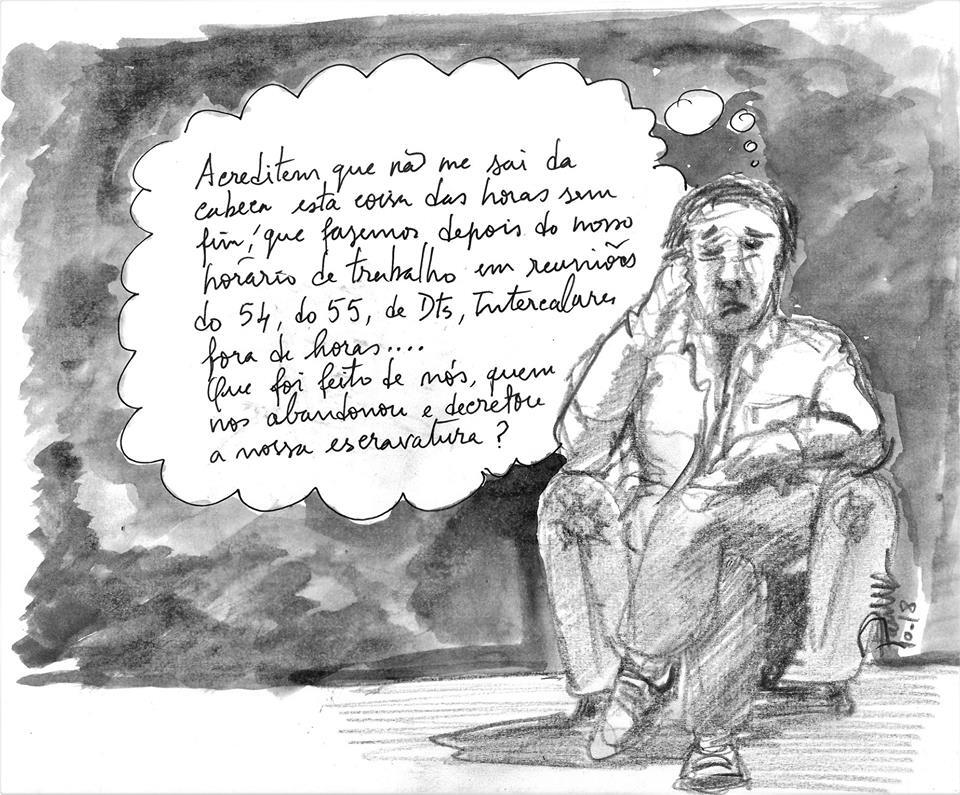 Acreditem que não me sai da
cabeça esta coisa das horas sem
fim, que fazemos depois do nosso
horário de trabalho em reuniões
do 54, do 55, de DTs, Intercalares
fora de horas....
Que foi feito de nós, quem
nos abandonou e decretou
a nossa escravatura?
10-18